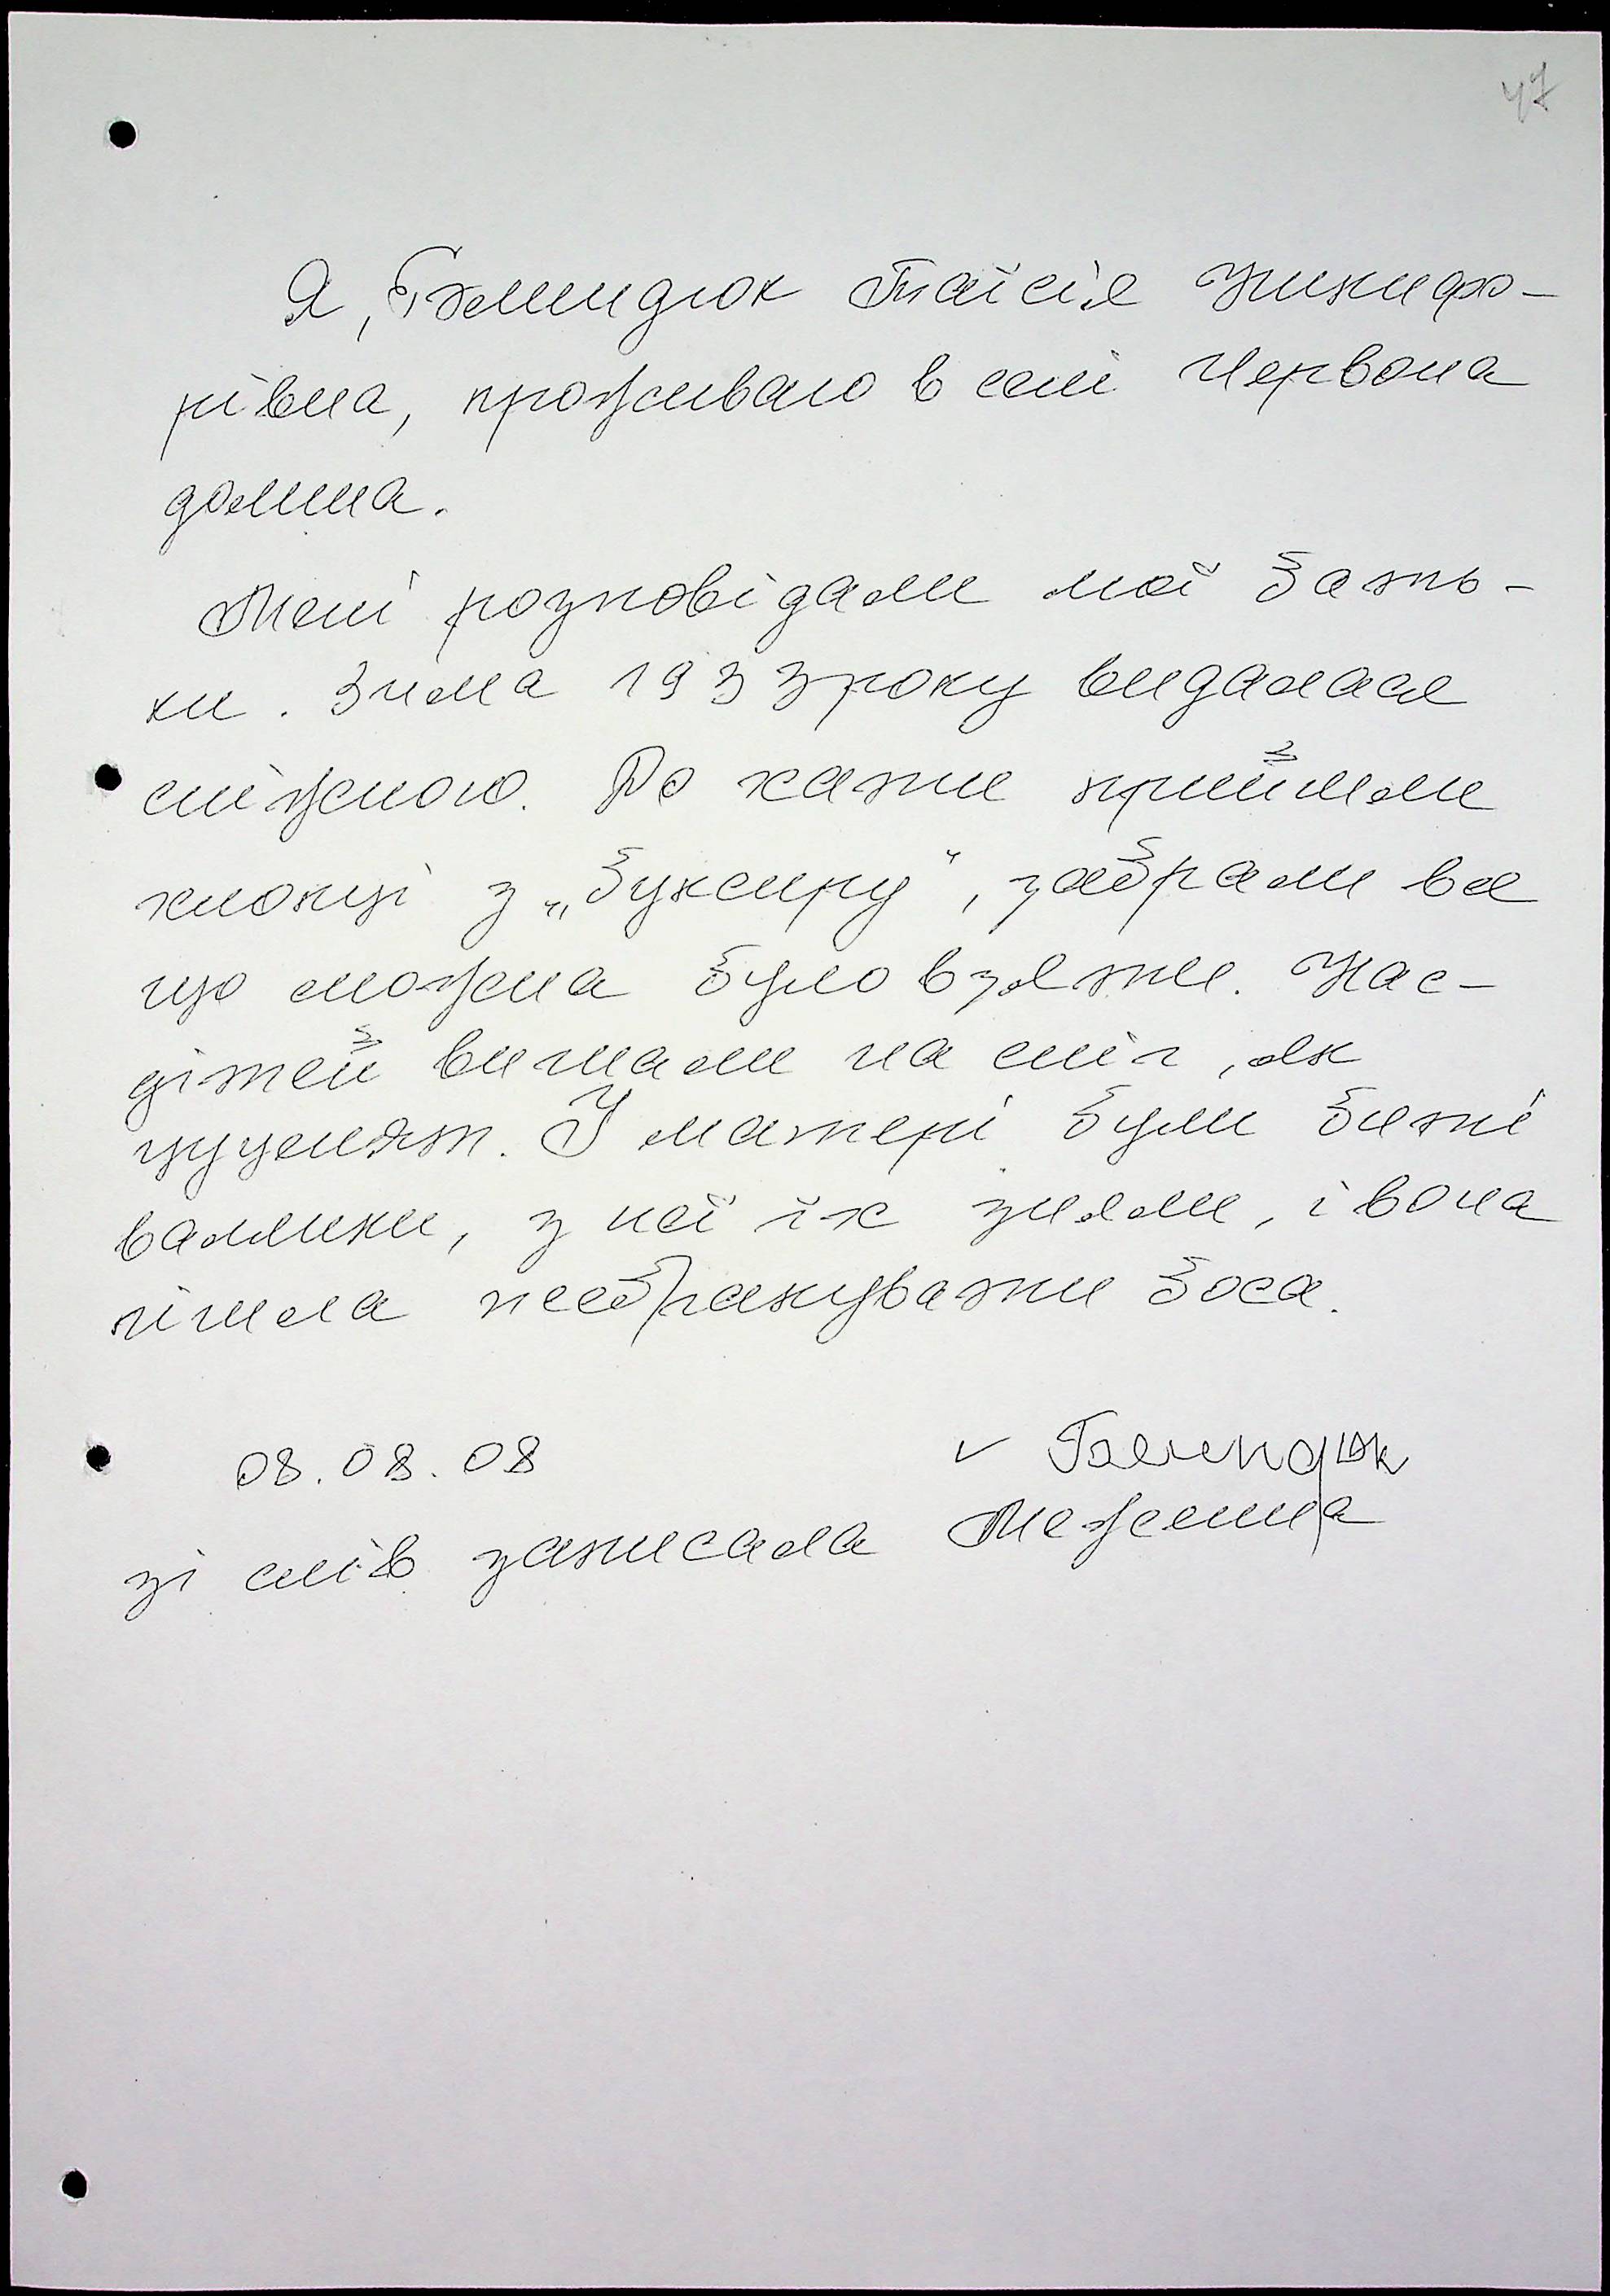 47
Я, Бемидюк Таїсія Никифо-
рівна, проживаю в селі Червона
долина.
Мені розповідали мої бать-
ки. Зима 1933 року видалася
сніжною. До хати прийшли
хлопці з „буксиру“, забрали все
що можна було взяти. Нас-
дітей вигнали на сніг, як
цуценят. У матері були биті
валянки, з неї їх зняли, і вона
пішла жебракувати боса.
08.08.08
зі слів записала